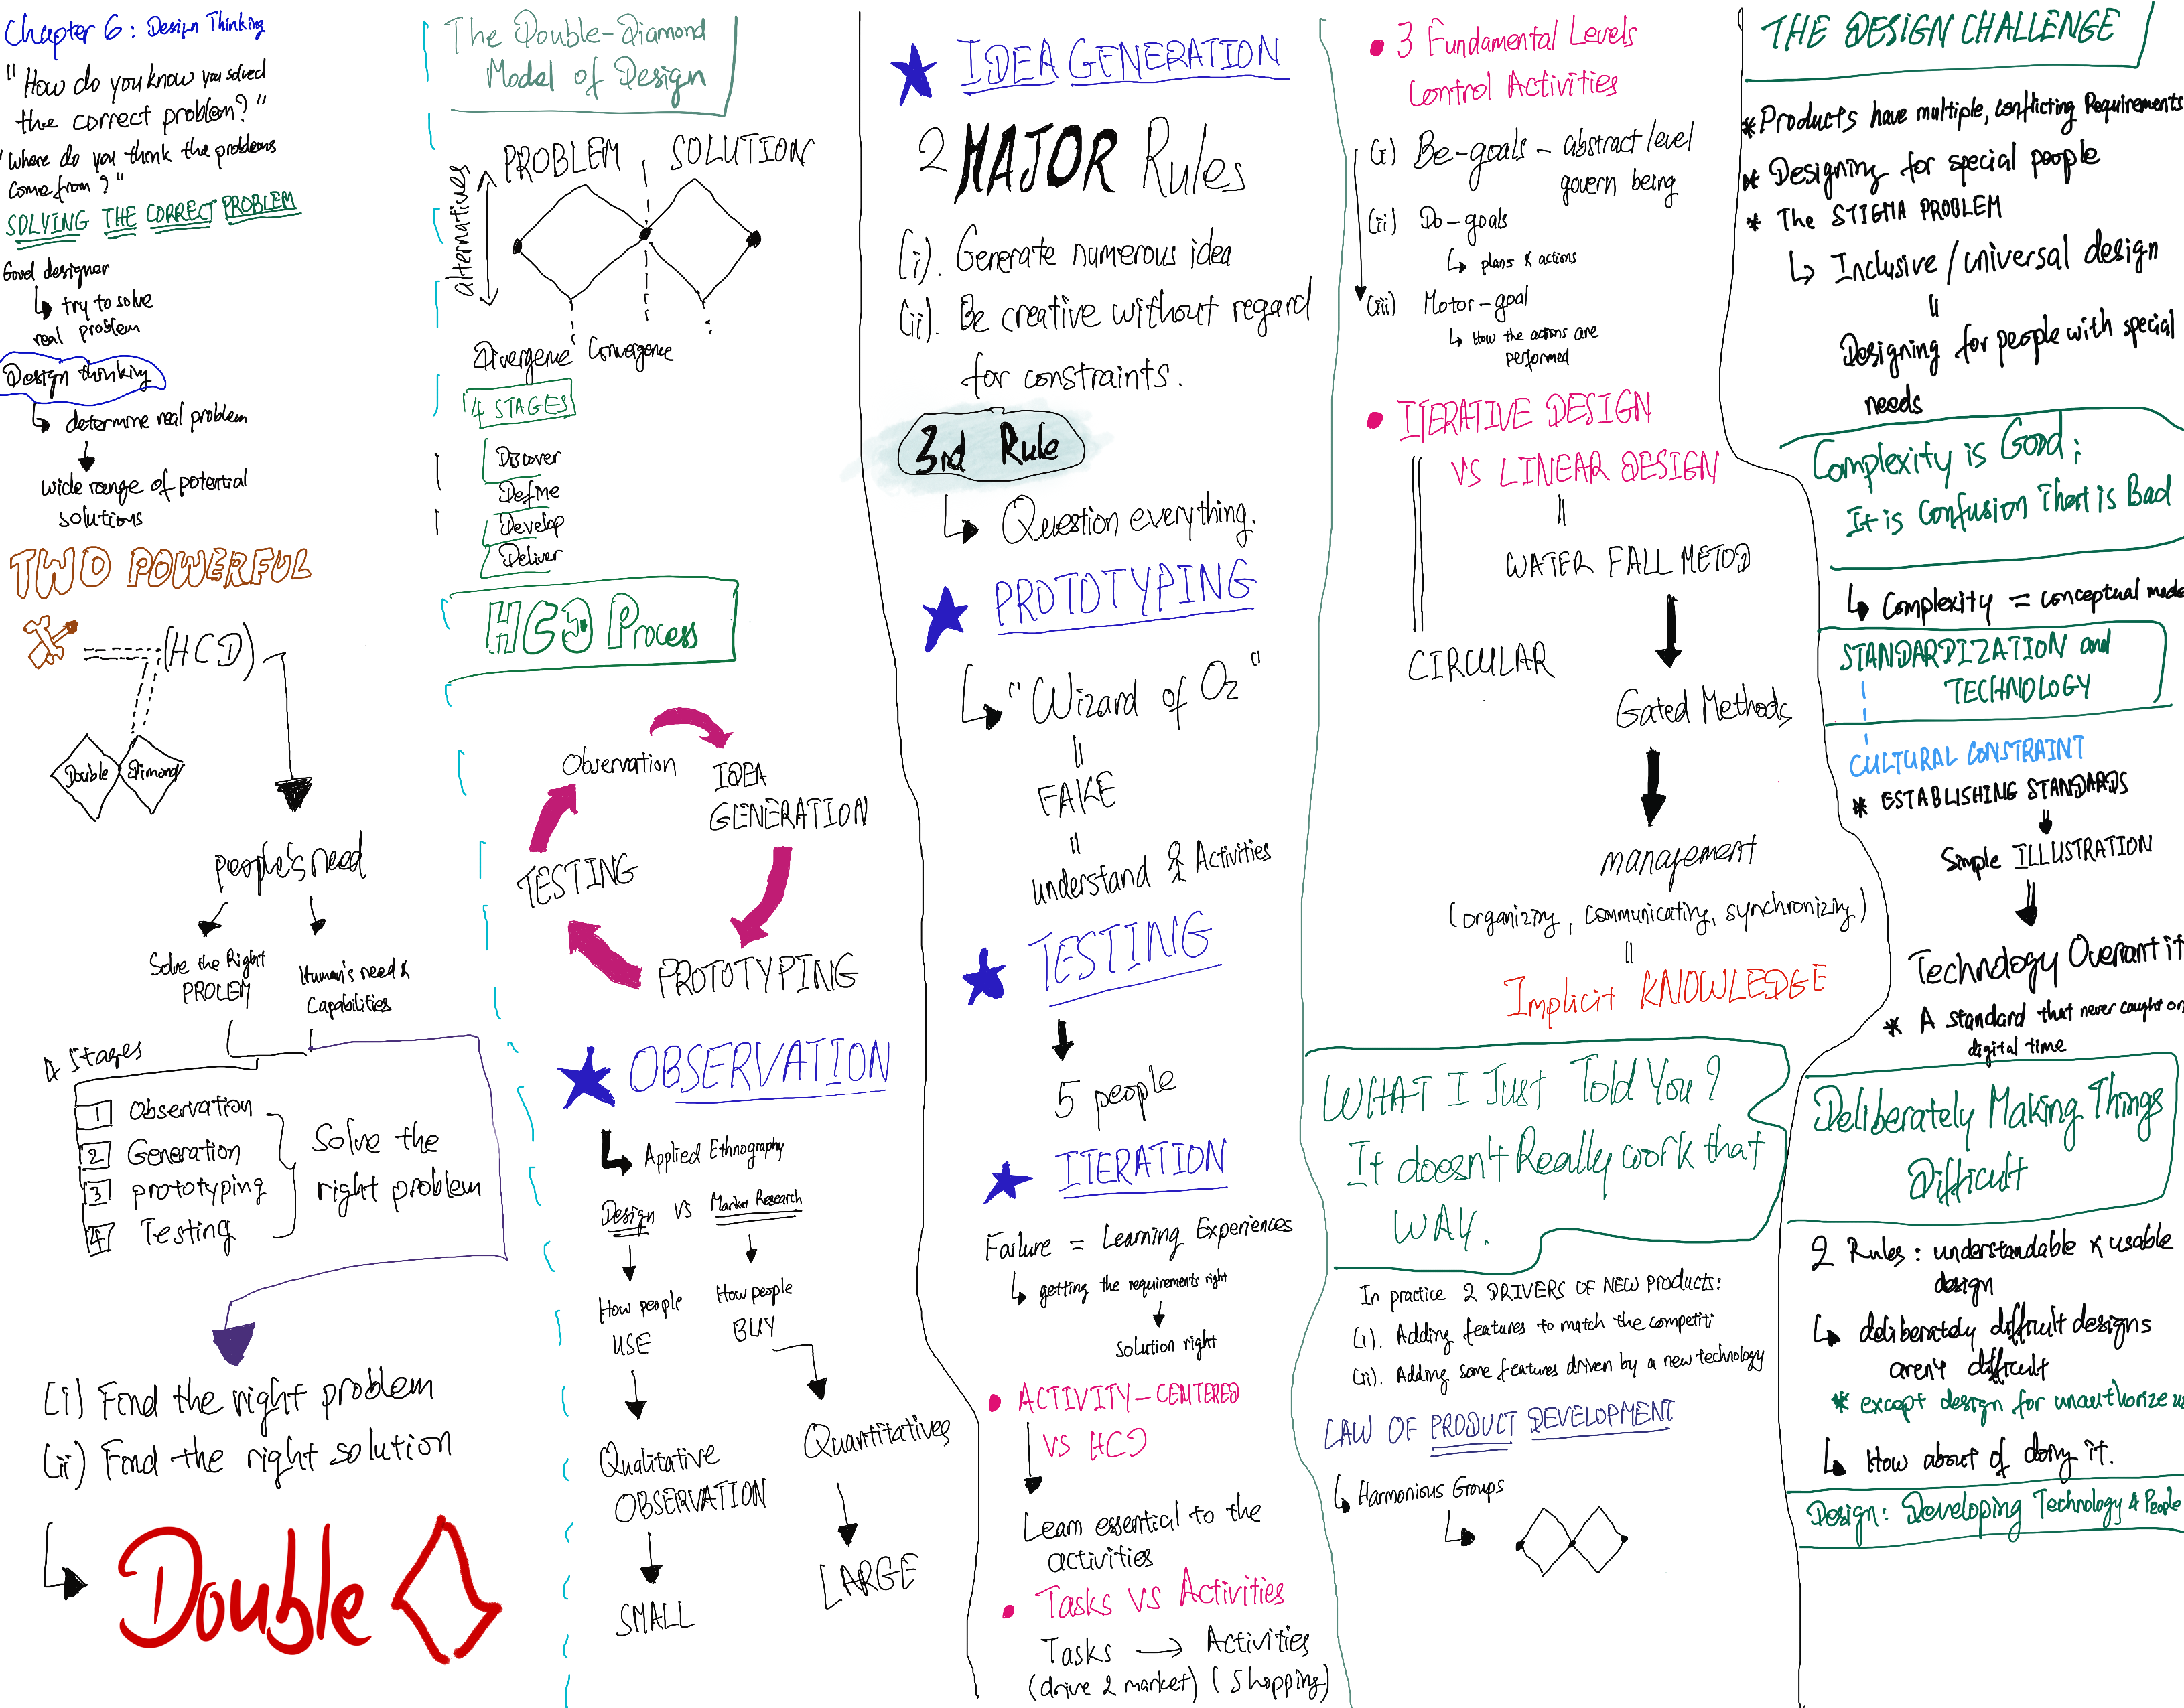 Chapter 6: Design Thinking
"How do you know you solved
the correct problem?"
"Where do you think the problems
come from?"
SOLVING THE CORRECT PROBLEM
Good designer
try to solve
real problem
Design thinking
determine real problem
wide range of potential
solutions
TWO POWERFUL
(HCD)
Double Dimond
people's need
Solve the Right
PROLEM
Human's need &
Capabilities
4 Stages
1 Observation
2 Generation
3 prototyping
4 Testing
Solve the
right problem
(i) Find the right problem
(ii) Find the right solution
Double
The Double-Diamond
Model of Design
PROBLEM SOLUTION
alternatives
Divergene Convergence
4 STAGES
Discover
Define
Develop
Deliver
HCD Process
Observation
IDEA
GENERATION
PROTOTYPING
TESTING
OBSERVATION
Applied Ethnography
Design VS Market Research
How people
USE
How people
BUY
Qualitative
OBSERVATION
Quantitatives
SMALL
LARGE
IDEA GENERATION
2 MAJOR Rules
(i). Generate numerous idea
(ii). Be creative without regard
for constraints.
3rd Rule
Question everything.
PROTOTYPING
"Wizard of Oz"
=
FAKE
=
understand Activities
TESTING
5 people
ITERATION
Failure = Learning Experiences
getting the requirements right
solution right
• ACTIVITY-CENTERED
VS HCD
Learn essential to the
activities
• Tasks VS Activities
Tasks → Activities
(drive 2 market) (Shopping)
• 3 Fundamental Levels
Control Activities
(i) Be-goals - abstract level
govern being
(ii) Do-goals
plans & actions
(iii) Motor-goal
How the actions are
performed
• ITERATIVE DESIGN
VS LINEAR DESIGN
=
WATER FALL METOD
CIRCULAR
Gated Methods
management
(organizing, communicating, synchronizing)
=
Implicit KNOWLEDGE
WHAT I Just Told You?
It doesn't Really work that
WAY.
In practice 2 DRIVERS OF NEW Products:
(i). Adding features to match the competiti
(ii). Adding some features driven by a new technology
LAW OF PRODUCT DEVELOPMENT
Harmonious Groups
THE DESIGN CHALLENGE
* Products have multiple, conflicting Requirements
* Designing for special people
* The STIGMA PROBLEM
Inclusive/universal design
=
Designing for people with special
needs
Complexity is Good;
It is Confusion That is Bad
Complexity = conceptual mode
STANDARDIZATION and
TECHNOLOGY
CULTURAL CONSTRAINT
* ESTABLISHING STANDARDS
Simple ILLUSTRATION
Technology
* A standard that never caught on
digital time
Deliberately Making Things
Difficult
2 Rules: understandable & usable
design
deliberately difficult designs
aren't difficult
* except design for unauthorize
How about of doing it.
Design: Developing Technology 4 People